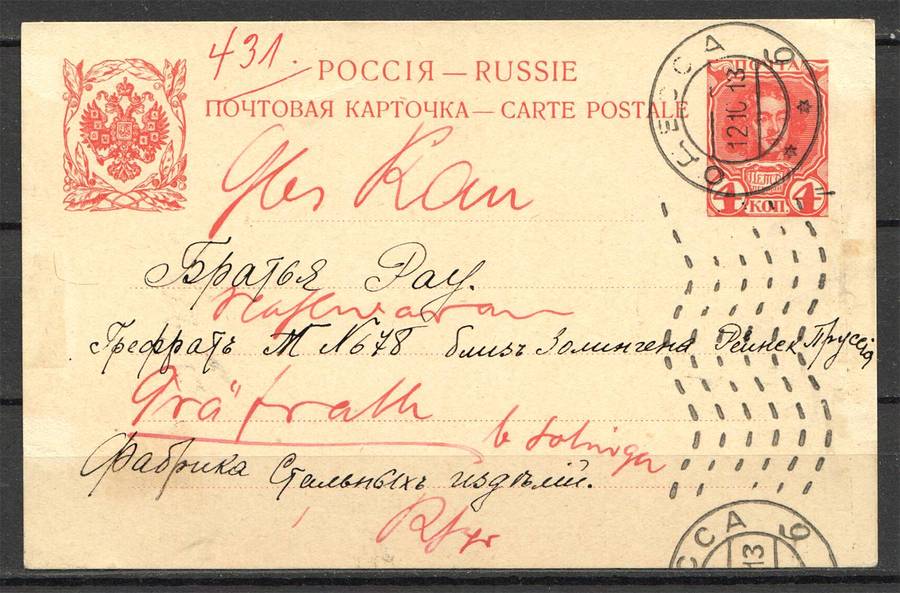 431.
РОССІЯ — RUSSIE
ПОЧТОВАЯ КАРТОЧКА — CARTE POSTALE
ОДЕССА 6
12 10 13
ПОЧТА
4 КОП. 4
Братья Рау.
Грефратъ М №678 близъ Золингена Рейнск Пруссія
Gräfrath
b Solingen
Фабрика Стальныхъ издѣлій.
ОДЕССА 6
13